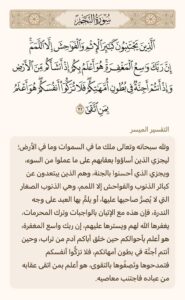 سُورَةُ النَّجْمِ
الَّذِينَ يَجْتَنِبُونَ كَبَائِرَ الْإِثْمِ وَالْفَوَاحِشَ إِلَّا اللَّمَمَ
إِنَّ رَبَّكَ وَاسِعُ الْمَغْفِرَةِ هُوَ أَعْلَمُ بِكُمْ إِذْ أَنشَأَكُم مِّنَ الْأَرْضِ
وَإِذْ أَنتُمْ أَجِنَّةٌ فِي بُطُونِ أُمَّهَاتِكُمْ فَلَا تُزَكُّوا أَنفُسَكُمْ هُوَ أَعْلَمُ
بِمَنِ اتَّقَىٰ
التفسير الميسر
ولله سبحانه وتعالى ملك ما في السموات وما في الأرض؛
ليجزي الذين أساؤوا بعقابهم على ما عملوا من السوء،
ويجزي الذي أحسنوا بالجنة، وهم الذين يبتعدون عن
كبائر الذنوب والفواحش إلا اللمم، وهي الذنوب الصغار
التي لا يُصرُّ صاحبها عليها، أو يلمُّ بها العبد على وجه
الندرة، فإن هذه مع الإتيان بالواجبات وترك المحرمات،
يغفرها الله لهم ويسترها عليهم، إن ربك واسع المغفرة،
هو أعلم بأحوالكم حين خلق أباكم آدم من تراب، وحين
أنتم أجنَّة في بطون أمهاتكم، فلا تزكُّوا أنفسكم
فتمدحوها وتَصِفُوها بالتقوى، هو أعلم بمن اتقى عقابه
من عباده فاجتنب معاصيه.